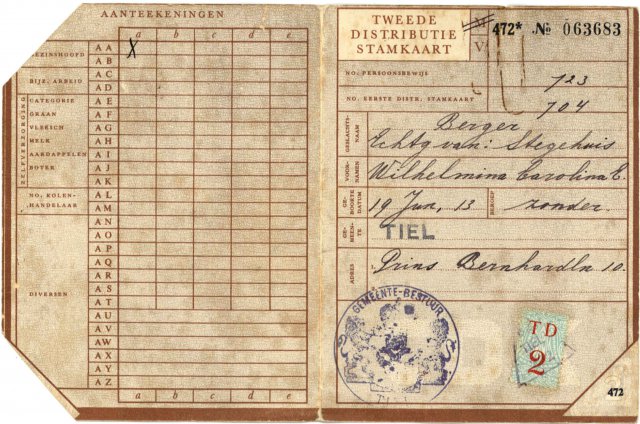 AANTEEKENINGEN
a b c d e
GEZINSHOOFD AA X
AB
BIJZ. ARBEID AC
AD
ZELFVERZORGING
CATEGORIE AE
GRAAN AF
VLEESCH AG
MELK AH
AARDAPPELEN AI
BOTER AJ
AK
NO. KOLEN-
HANDELAAR
AL
AM
AN
AO
AP
AQ
AR
DIVERSEN AS
AT
AU
AV
AW
AX
AY
AZ
a b c d e
TWEEDE
DISTRIBUTIE
STAMKAART
472* No 063683
NO. PERSOONSBEWIJS 723
NO. EERSTE DISTR. STAMKAART 704
GESLACHTS-
NAAM
Berger
Echtg van: Stegehuis
VOOR-
NAMEN
Wilhelmina Carolina E.
GE-
BOORTE
DATUM
19 Jun, 13
BEROEP
zonder.
GE-
MEEN-
TE
TIEL
ADRES
Prins Bernhardln 10.
GEMEENTE-BESTUUR
TD
2
472